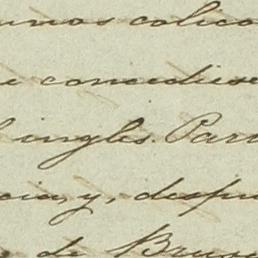 unos colico
concediese
ingles. Para
cia, y, despu
de Bru